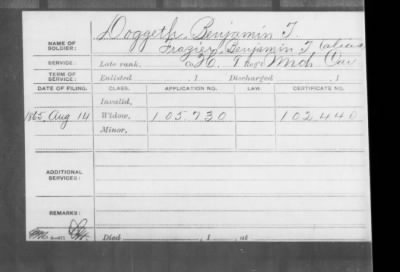 Doggeth, Benjamin T.
NAME OF SOLDIER: Frazier, Benjamin T (alias)
SERVICE: Late rank, Co. H, 9 Reg't Mich Cav
TERM OF SERVICE: Enlisted , 1 Discharged , 1
DATE OF FILING. CLASS. APPLICATION NO. LAW. CERTIFICATE NO.
Invalid,
1865, Aug 14 Widow, 105,730 102,440
Minor,
ADDITIONAL SERVICES:
REMARKS:
Died , 1 , at